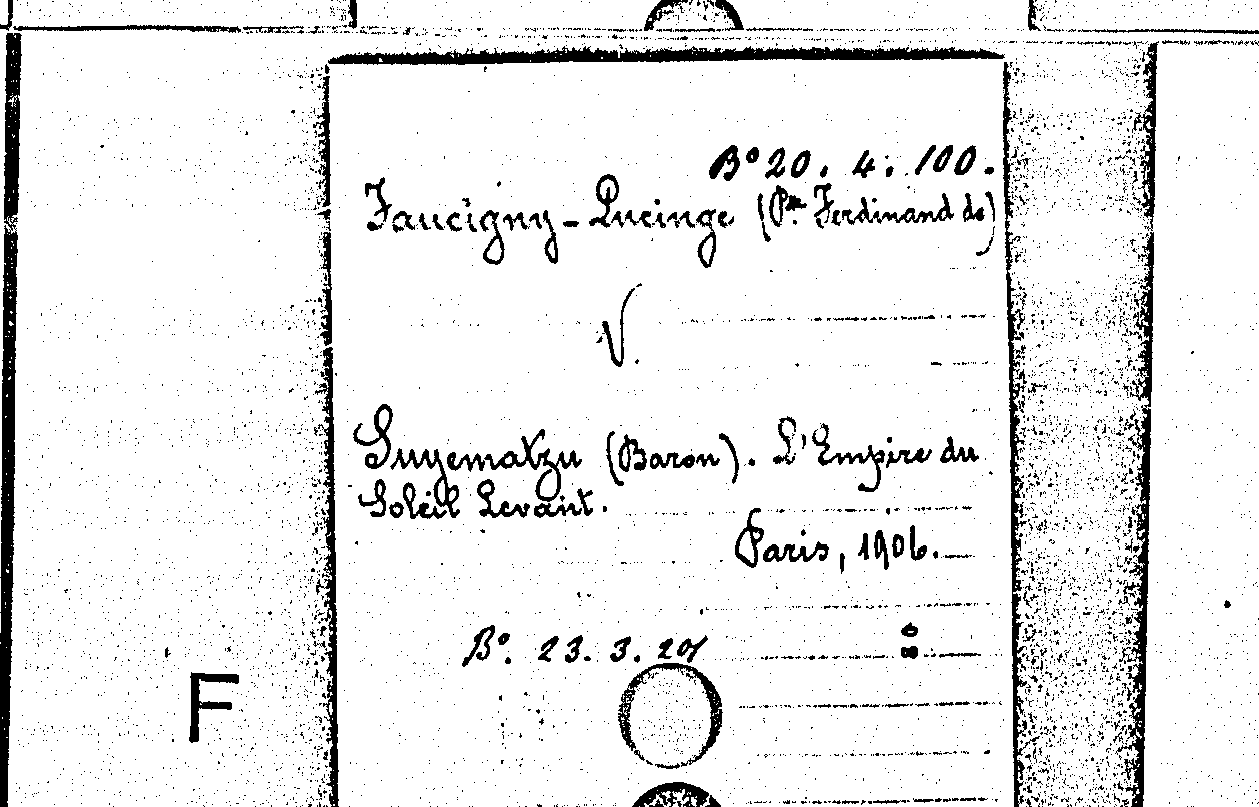 B° 20. 4. 100.
Faucigny-Lucinge (Pce Ferdinand de)
V.
Suyematzu (Baron). L'Empire du
Soleil Levant.
Paris, 1906.
B°. 23. 3.
F